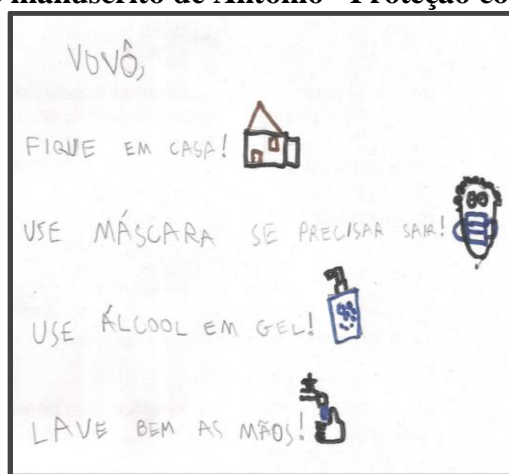 manuscrito de Antônio - Proteção co
VOVÔ,
FIQUE EM CASA!
USE MÁSCARA SE PRECISAR SAIR!
USE ÁLCOOL EM GEL!
LAVE BEM AS MÃOS!